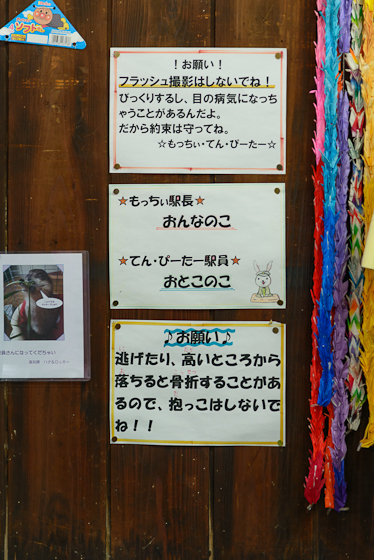 ソフト
！お願い！
フラッシュ撮影はしないでね！
びっくりするし、目の病気になっち
ゃうことがあるんだよ。
だから約束は守ってね。
☆もっちぃ・てん・ぴーたー☆
☆もっちぃ駅長☆
おんなのこ
☆てん・ぴーたー駅員☆
おとこのこ
♪お願い♪
逃げたり、高いところから
落ちると骨折することがあ
るので、抱っこはしないで
ね！！
員さんになってくださぃ